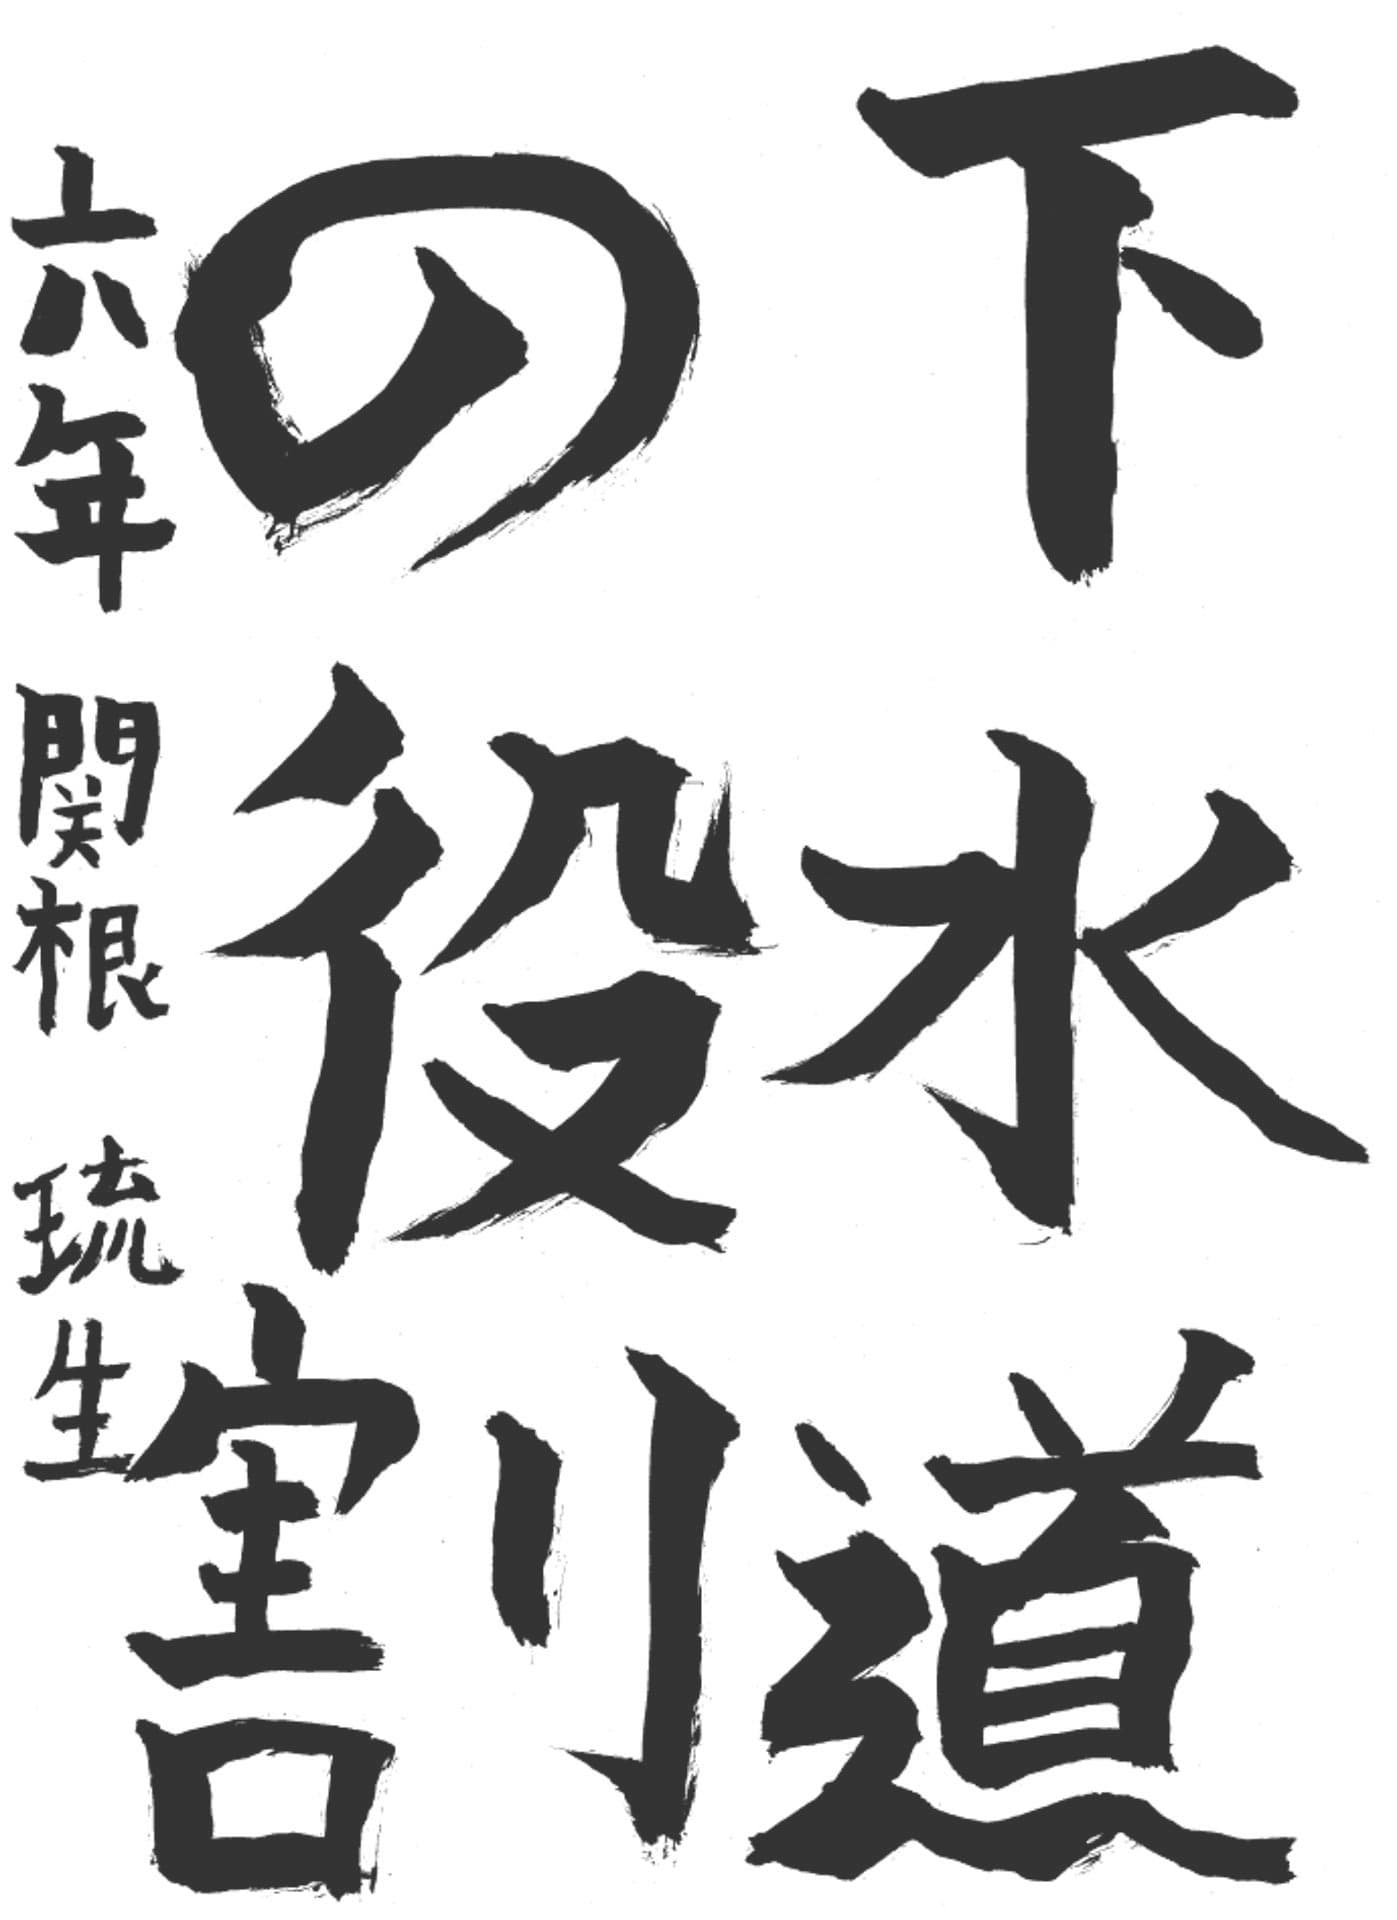 下水道
の役割
六年 関根 琉生